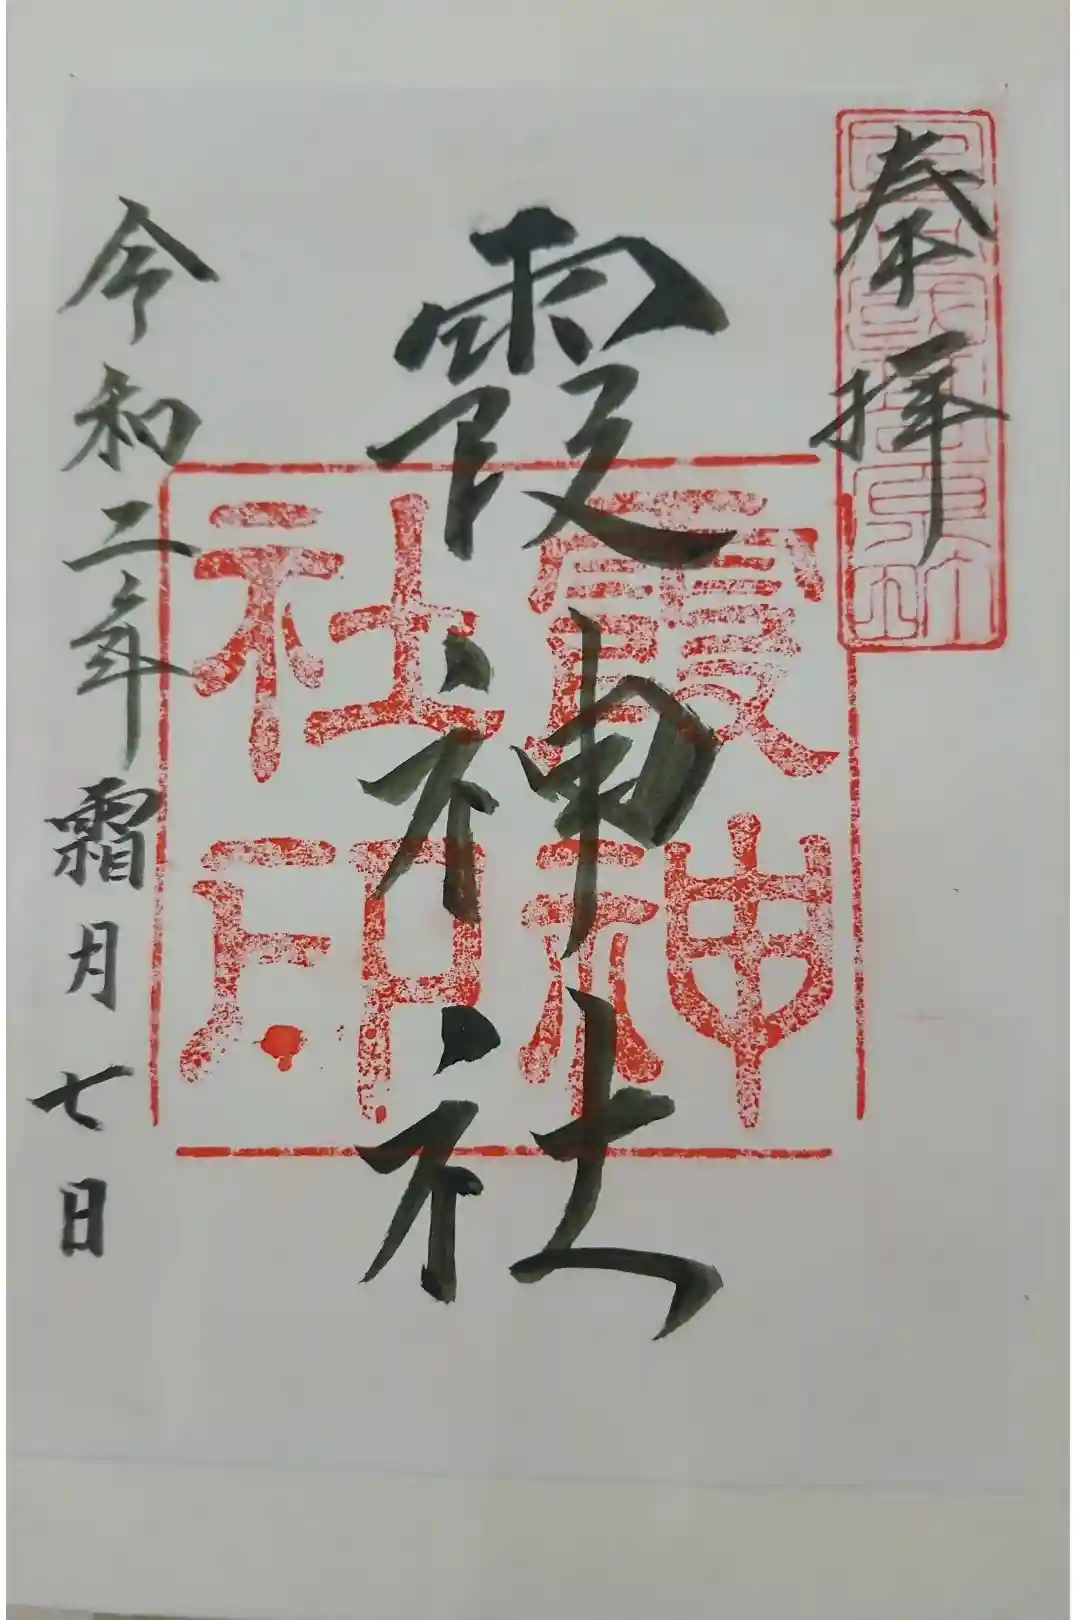 奉拝
霞神社
霞神社印
令和二年霜月七日